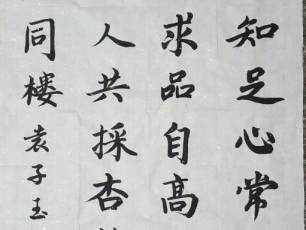 知足心常
求品自高
人共採杏
同楼袁子玉